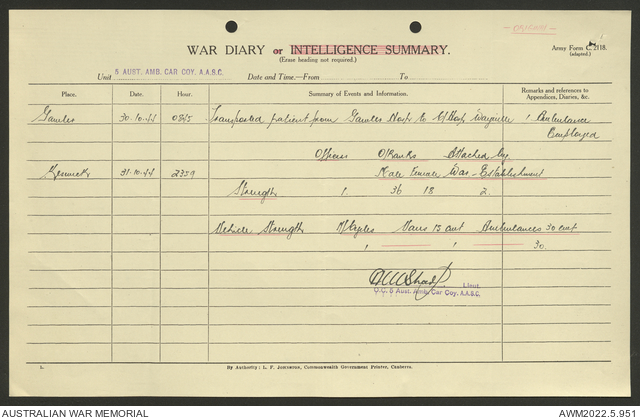 - ORIGINAL -
WAR DIARY or INTELLIGENCE SUMMARY.
(Erase heading not required.)
Army Form C. 2118.
(adapted.)
Unit 5 AUST. AMB. CAR COY. A.A.S.C. Date and Time.—From To
Place. Date. Hour. Summary of Events and Information. Remarks and references to Appendices, Diaries, &c.
Gawler 30.10.44 0845 Transported patient from Gawler to Wayville 1 Ambulance
Employed
Officers O/Ranks Attached
Keswick 31.10.44 2359 Male Female War Establishment
Strength 1. 36 18 2.
Vehicle Strength M/Cycles Vans 15 cwt Ambulances 30 cwt
1 1 30.
Lieut.
O.C. 5 Aust. Amb. Car Coy. A.A.S.C.
L. By Authority: L. F. Johnston, Commonwealth Government Printer, Canberra.
AUSTRALIAN WAR MEMORIAL AWM2022.5.951